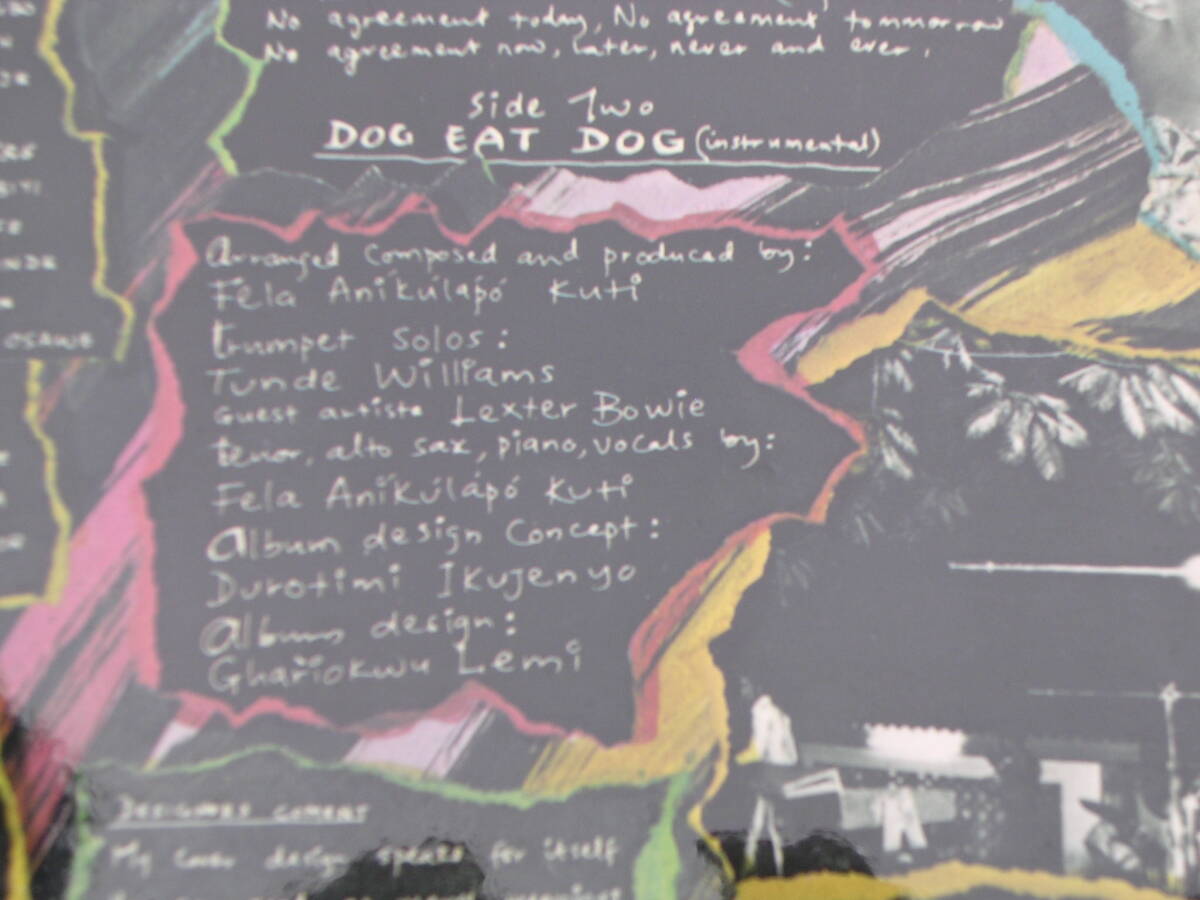 No agreement today, No agreement tommorrow
No agreement now, Later, never and ever.
Side Two
DOG EAT DOG (instrumental)
Arranged Composed and produced by:
Fela Aníkúlápó Kuti
trumpet Solos:
Tunde Williams
Guest artiste Lexter Bowie
tenor, alto sax, piano, vocals by:
Fela Aníkúlápó Kuti
Album design Concept:
Durotimi Ikujenyo
Album design:
Ghariokwu Lemi
OSAWE
DESIGNERS COMENT
My cover design speaks for itself